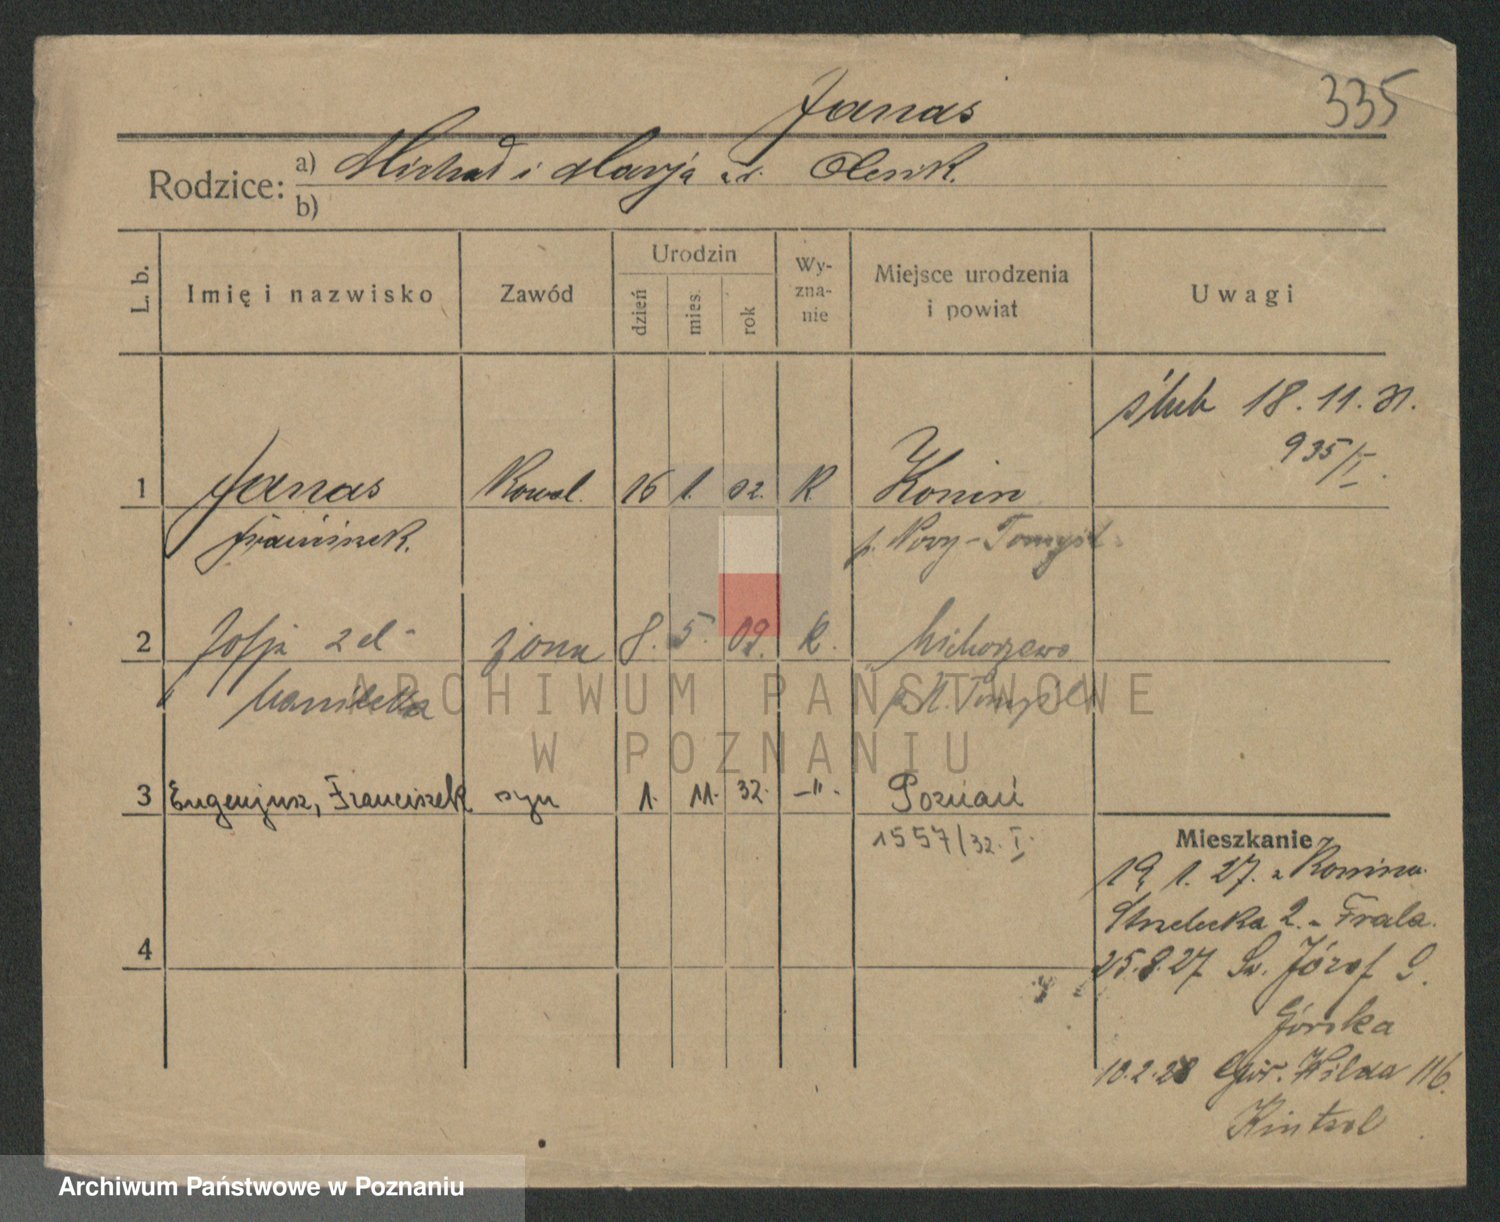 Janas
335
Rodzice: a) Michał i Marja
b)
L. b.
Imię i nazwisko
Zawód
Urodzin
dzień
mies.
rok
Wy-
zna-
nie
Miejsce urodzenia
i powiat
Uwagi
ślub 18.11.31.
935/I.
1 Janas Kowal. 16 1. 02. K. Konin
Franciszek. p. Nowy-Tomyśl
2 Zofja żona 8. 5. 09. k. Michorzewo
p. N. Tomyśl
3 Eugenjusz, Franciszek syn 1. 11. 32. -"- Poznań
1557/32. I.
Mieszkanie
19. 1. 27. z Konina
Strzelecka 2. - Frala.
25.8.27. Św. Józef 9.
Górska
4
10.2.28 Gór. Wilda 116.
ARCHIWUM PAŃSTWOWE
W POZNANIU
Archiwum Państwowe w Poznaniu